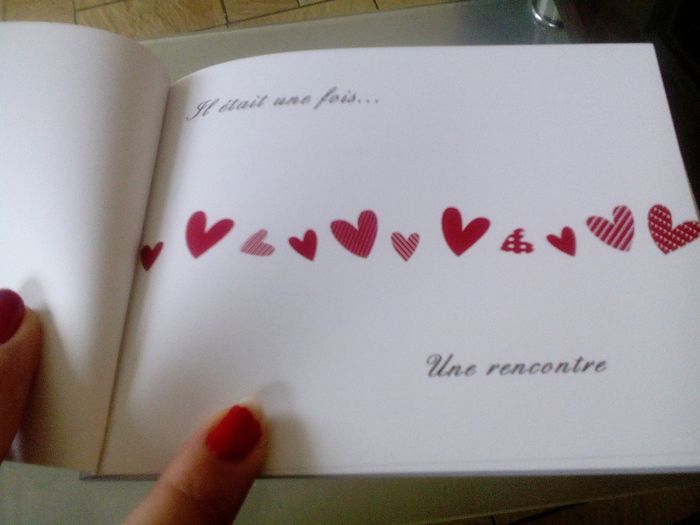 Il était une fois...
Une rencontre